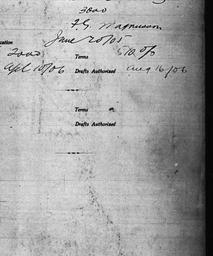 3000
F.G. Magnuson
ocation June 20/05
2000 Terms 5 10 0%
Apl 10/06 Drafts Authorized Aug 16/06
Terms
Drafts Authorized